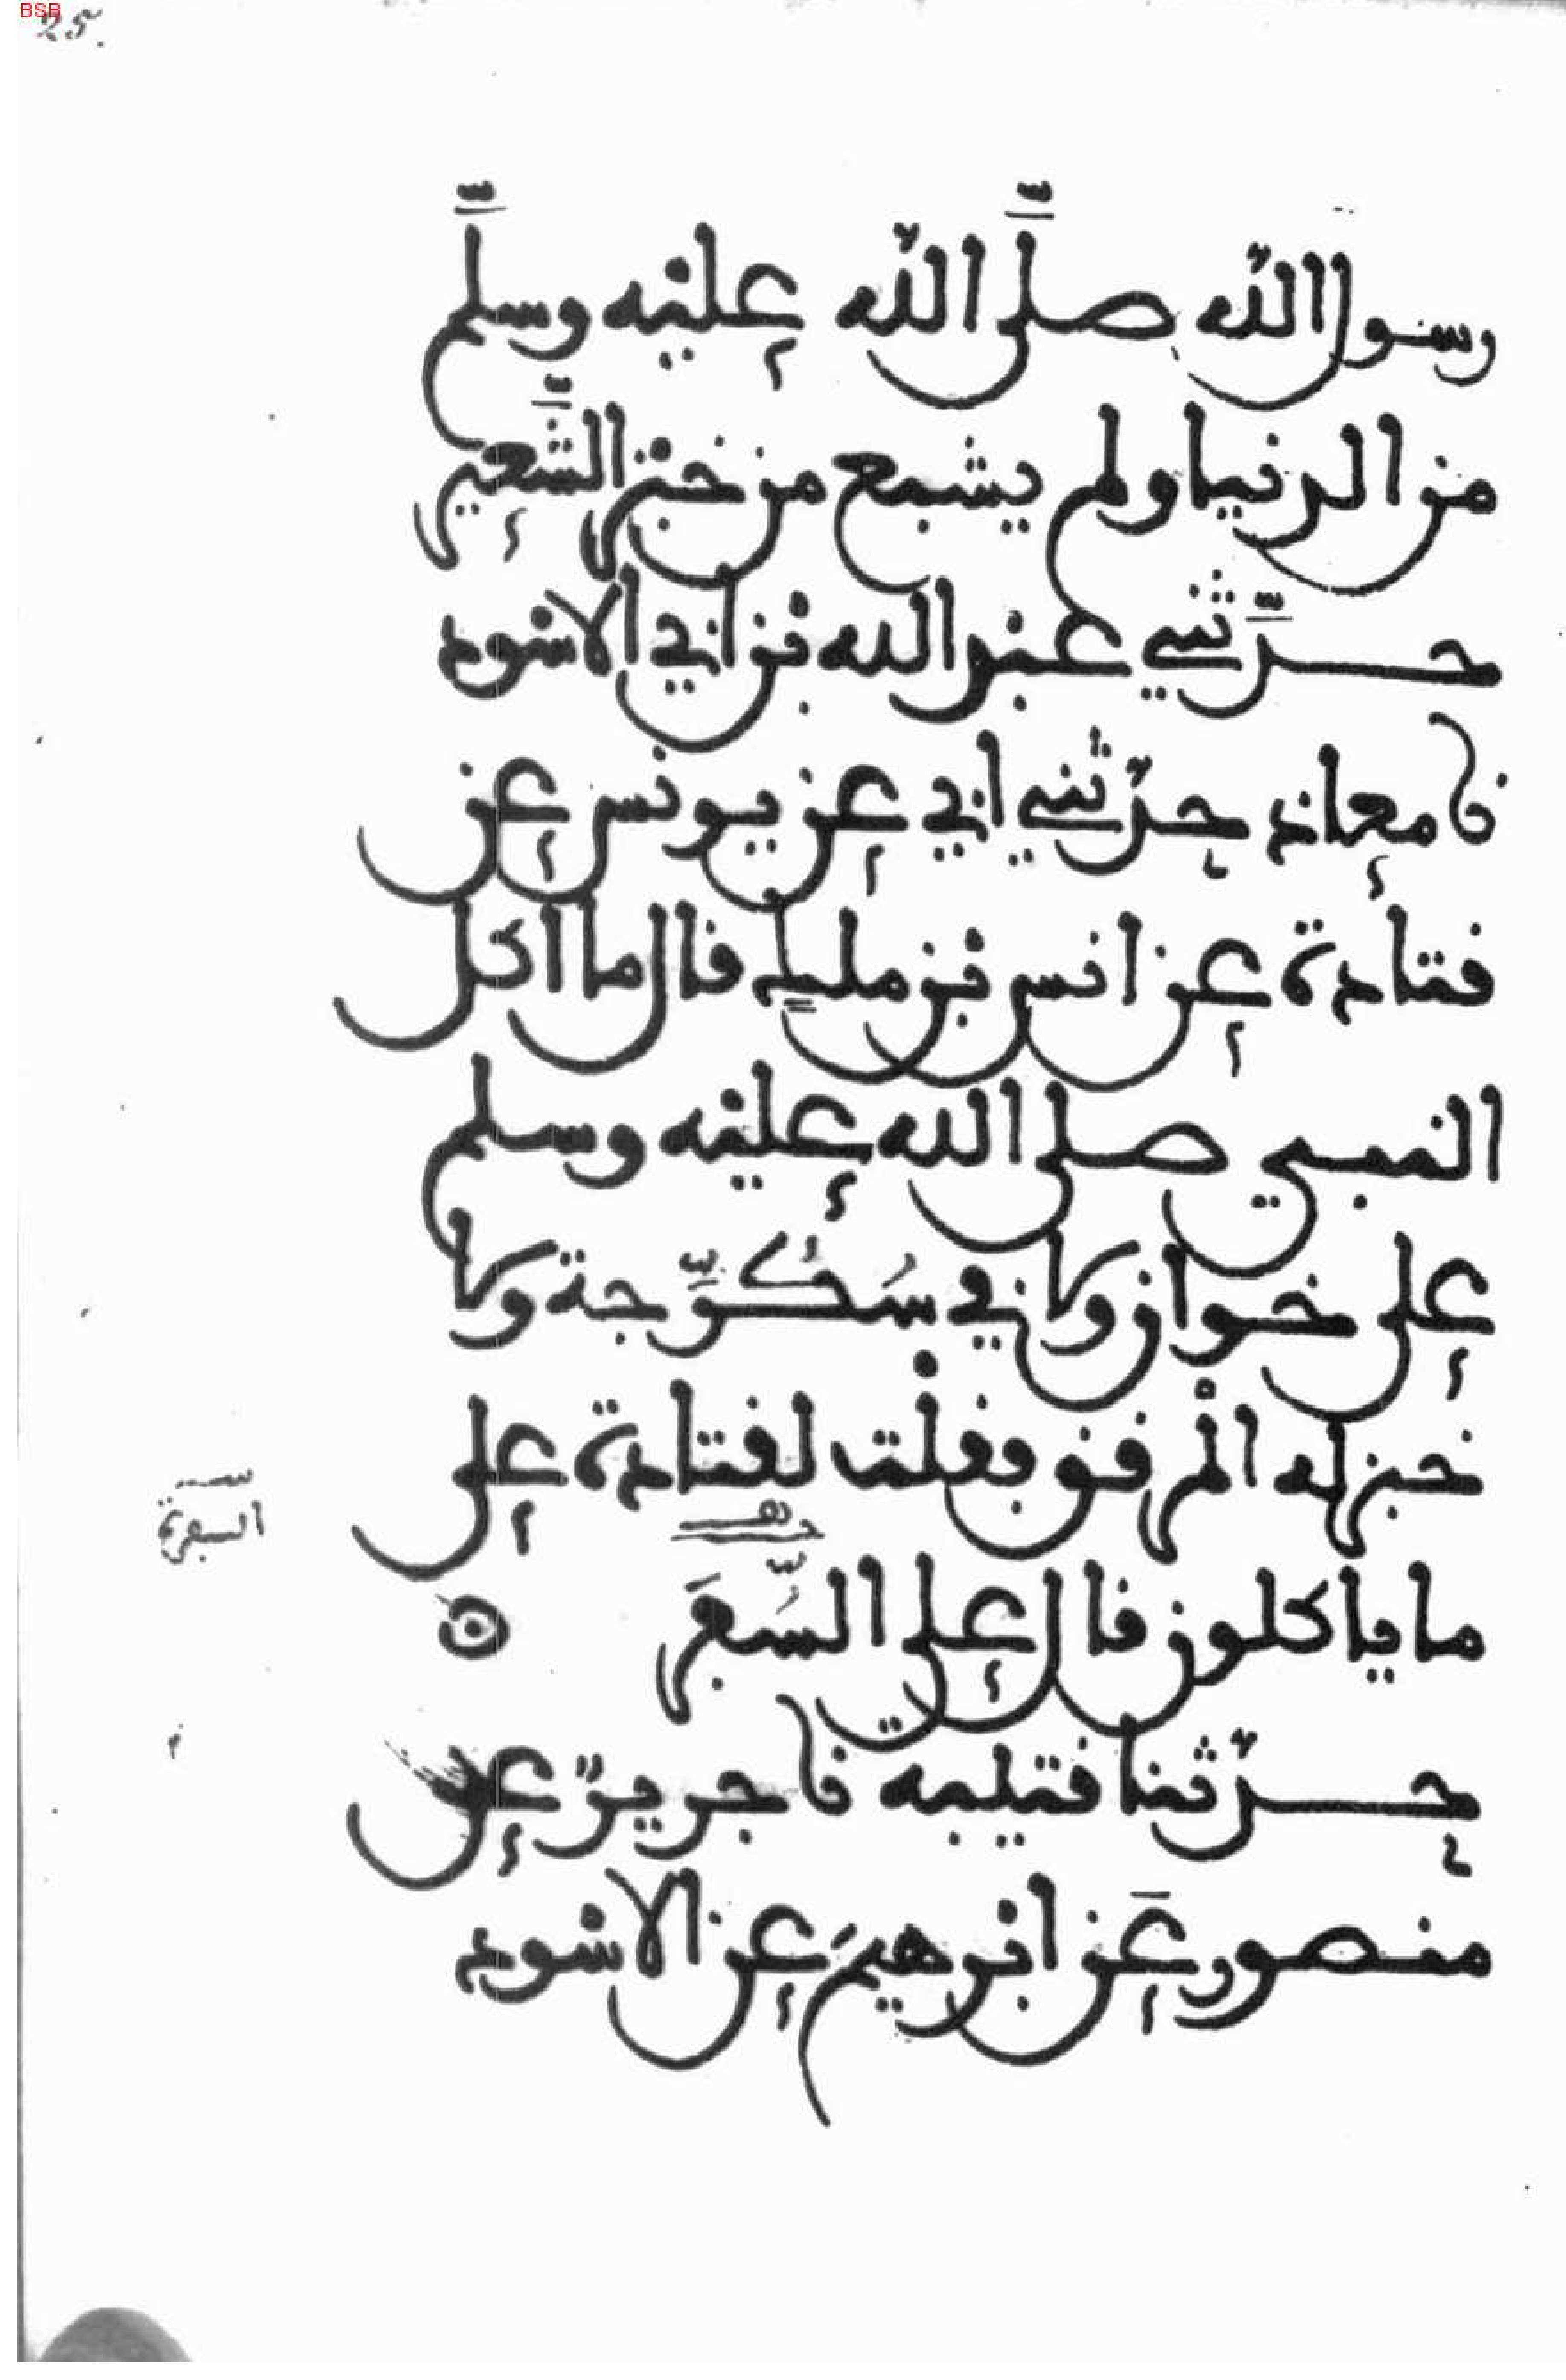 BSB
25.
رسول الله صلَّى الله عليه وسلَّم
من الدنيا ولم يشبع من خبز الشَّعير
حدَّثني عبد الله بن ابي الاسود
نا معاذ حدّثني ابي عن يونس عن
قتادة عن انس بن ملك قال ما اكل
النبي صلى الله عليه وسلم
على خوان ولا في سُكُرَّجة ولا
خبز له المرقق فقلت لقتادة على
ما ياكلون قال على السُّفَر
السفرة
حدّثنا قتيبه نا جريرٌ عن
منصور عَن ابرهيمَ عن الاسود